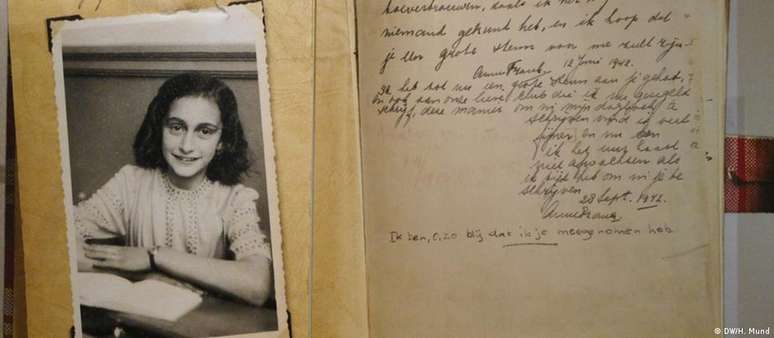 toevertrouwen, zoals ik het
niemand gekund heb, en ik hoop dat
je een grote steun voor me zult zijn.
Anne Frank. 12 Juni 1942.
Ik heb tot nu een grote steun aan je gehad,
en ook aan onze lieve club die ik nu geregeld
schrijf, deze manier om in mijn dagboek te
schrijven vind ik veel
fijner en nu kan
ik het uur haast
niet afwachten als
ik tijd heb om in je te
schrijven.
28 Sept. 1942.
Anne Frank
Ik ben, o, zo blij dat ik je meegenomen heb
© DW/H. Mund